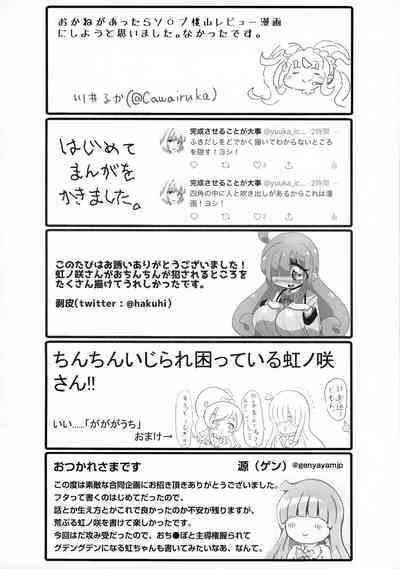 おかねがあったらSYOプ桃山レビュー漫画
にしようと思いました。なかったです。
川井るか(@Cawairuka)
はじめて
まんがを
かきました。
完成させることが大事 @yuuka_ic... · 2時間
ふきだしをどでかく描いてわからないところ
を隠す！ヨシ！
完成させることが大事 @yuuka_ic... · 2時間
四角の中に人と吹き出しがあるからこれは
漫画！ヨシ！
このたびはお誘いありがとうございました！
虹ノ咲さんがおちんちんが犯されるところを
たくさん描けてうれしかったです。
剥皮(twitter：@hakuhi)
ちんちんいじられ困っている虹ノ咲
さん!!
いい.....「がががうち」
おまけ→
おつかれさまです
源（ゲン） @genyayamjp
この度は素敵な合同企画にお招き頂きありがとうございました。
フタって書くのはじめてだったので、
話とか生え方とかこれで良かったのか不安が残りますが、
荒ぶる虹ノ咲を書けて楽しかったです。
今回はだ攻め受だったので、おち●ぽと主導権握られて
グデングデンになる虹ちゃんも書いてみたいなあ、なんて。